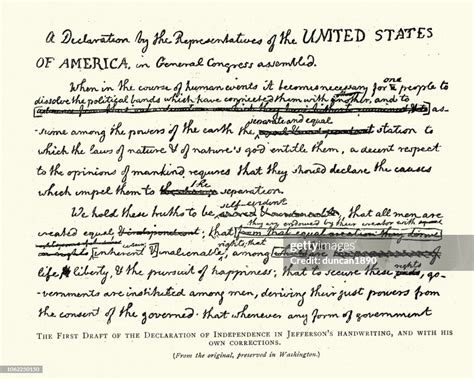 A Declaration by the Representatives of the UNITED STATES
OF AMERICA, in General Congress assembled.
When in the course of human events it becomes necessary for one people to
dissolve the political bands which have connected them with another, and to
as-
separate and equal
sume among the powers of the earth the station to
which the laws of nature & of nature's god entitle them, a decent respect
to the opinions of mankind requires that they should declare the causes
the
which impel them to separation.
self-evident
We hold these truths to be that all men are
they are endowed by their creator with
created equal that from that equal creation they derive
rights, that
inherent & inalienable, among
rights
life & liberty, & the pursuit of happiness; that to secure these, go-
vernments are instituted among men, deriving their just powers from
the consent of the governed. that whenever any form of government
gettyimages
duncan1890
THE FIRST DRAFT OF THE DECLARATION OF INDEPENDENCE IN JEFFERSON'S HANDWRITING, AND WITH HIS
OWN CORRECTIONS.
(From the original, preserved in Washington.)
1062230150